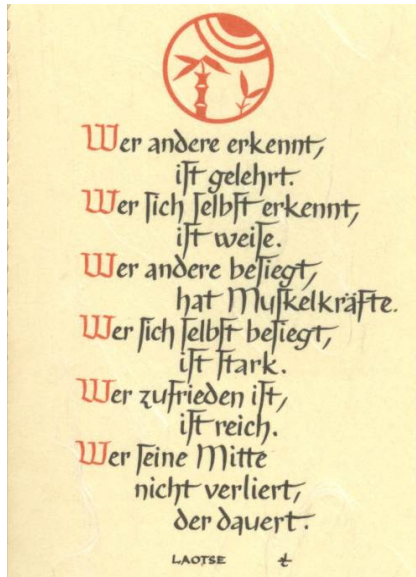 Wer andere erkennt,
ist gelehrt.
Wer sich selbst erkennt,
ist weise.
Wer andere besiegt,
hat Muskelkräfte.
Wer sich selbst besiegt,
ist stark.
Wer zufrieden ist,
ist reich.
Wer seine Mitte
nicht verliert,
der dauert.
LAOTSE